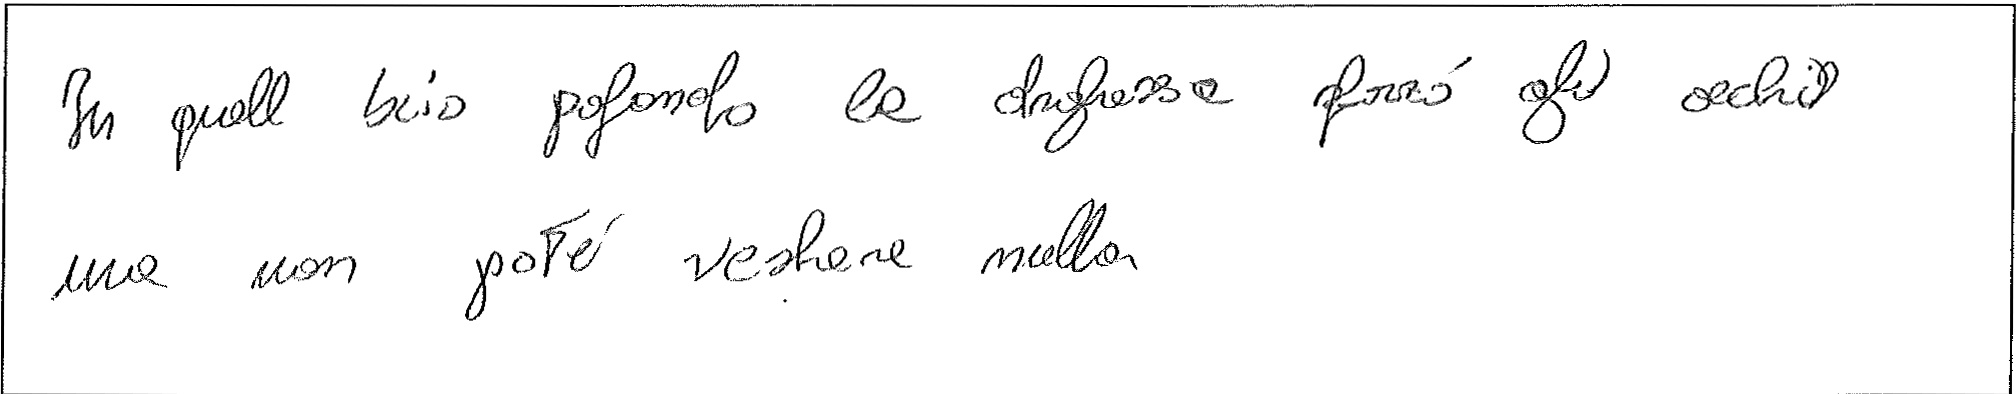 In quell buio pofondo la duchessa forzó gli occhi
ma non poté vedere nulla